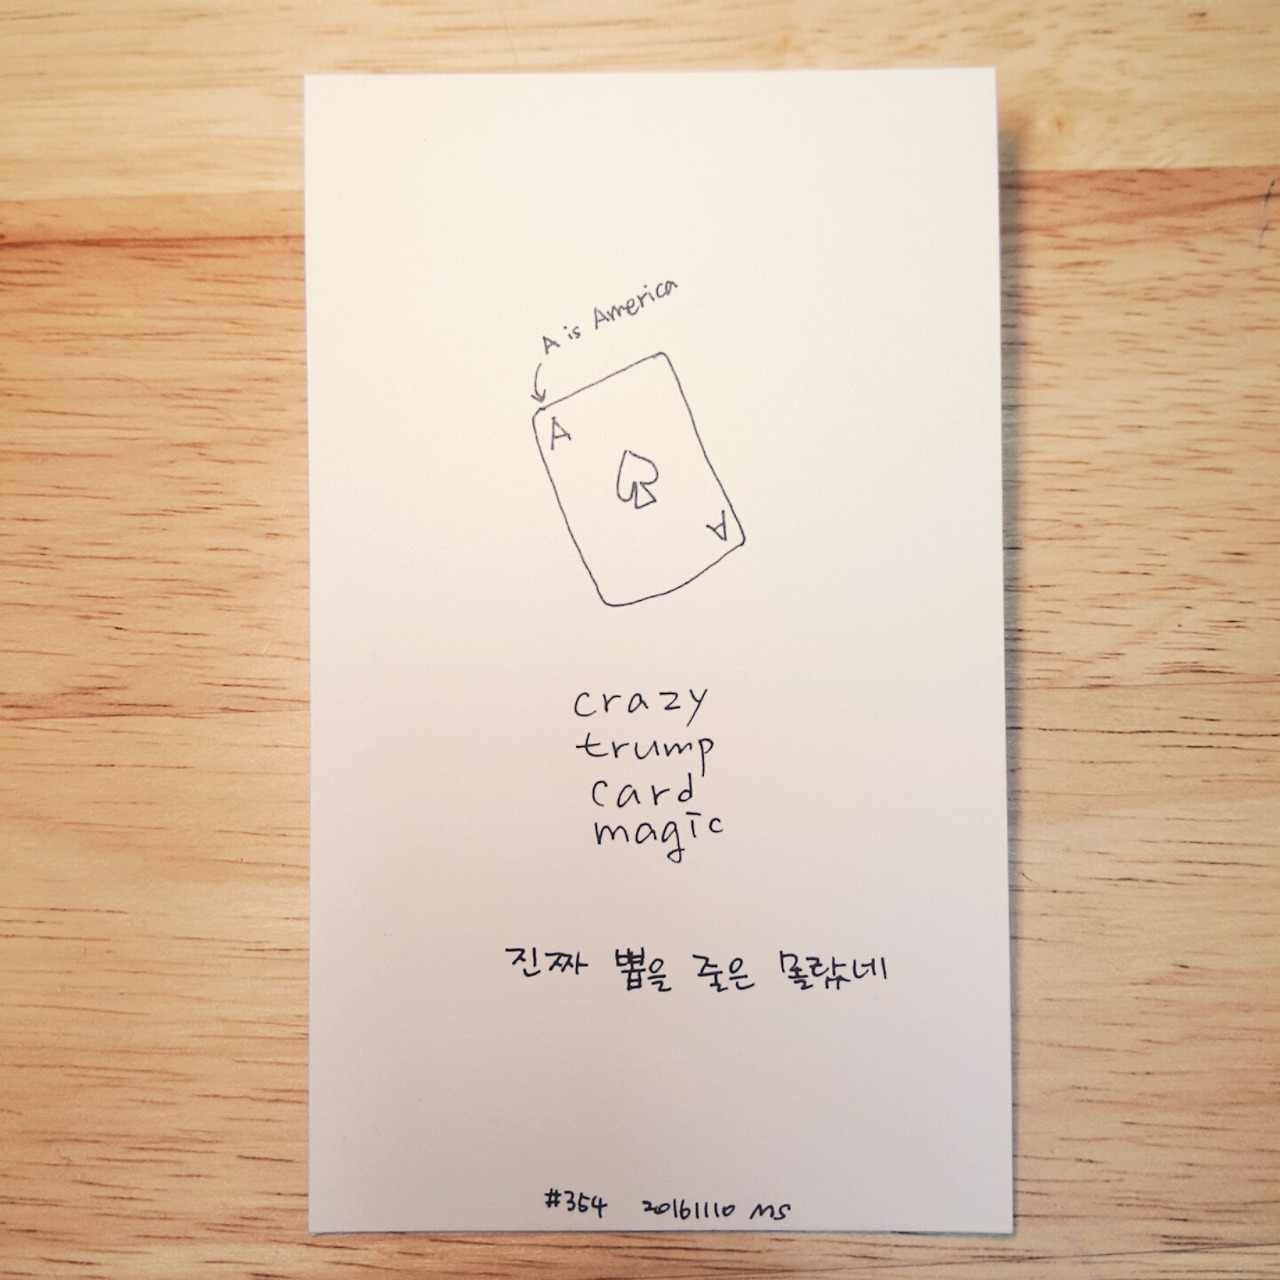 A is America
A
A
crazy
trump
card
magic
진짜 뽑을 줄은 몰랐네
#354 20161110 MS